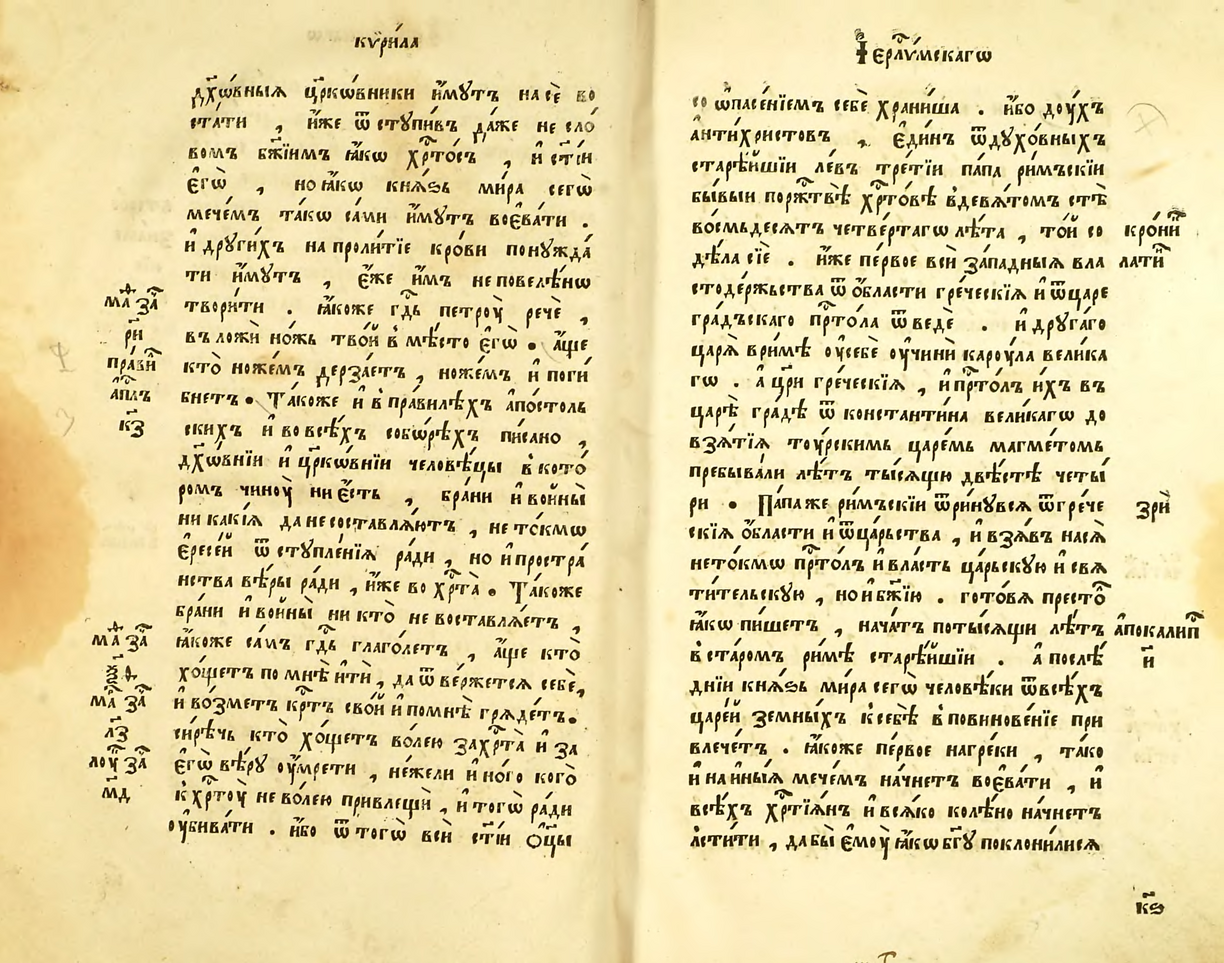 кѷри́ла
дх҃о́вныѧ цр҃ко́вники и҆́мꙋтъ на сѐ во
ста́ти , и҆́же ѿстꙋпи́въ да́же не сло́
вомъ бж҃іимъ ꙗ҆́кѡ хрⷭ҇то́съ , и҆ ст҃і́и
є҆гѡ̀ , но ꙗ҆́кѡ кнѧ́ѕь ми́ра сегѡ̀
мече́мъ та́кѡ са́ми и҆́мꙋтъ воєва́ти .
и҆ дрꙋги́хъ на проли́тїе кро́ви понꙋжда́
ти и҆́мꙋтъ , є҆́же и҆̀мъ не повелѣ́нѡ
твори́ти . ꙗ҆́коже гдⷭ҇ь петроу́ речѐ ,
въложѝ но́жь тво́й в̾ мѣ́сто є҆гѡ̀ . а҆́ще
кто̀ ноже́мъ дерза́етъ , ноже́мъ и҆ поги́
бнетъ . Та́коже и҆ в̾ пра́вилѣхъ а҆по́столь
скихъ и҆ во всѣ́хъ собѡ́рѣхъ пи́сано ,
дх҃о́внїи и҆ цр҃ко́внїи человѣ́цы в̾ кото́
ромъ чиноу́ ни є҆́сть , бра́ни и҆ войны̀
ни какі́ѧ да не составлѧ́ютъ , не то́кмѡ
є҆ресе́й ѿстꙋпле́нїѧ ра́ди , но и҆ простра́
нства вѣ́ры ра́ди , и҆́же во хрⷭ҇та̀ . Та́коже
бра́ни и҆ войны̀ ни кто̀ не воставлѧ́етъ ,
ꙗ҆́коже са́мъ гдⷭ҇ь глаго́летъ , а҆́ще кто̀
хо́щетъ по мнѣ̀ и҆тѝ , да ѿве́ржетсѧ себѐ ,
и҆ во́зметъ крⷭ҇тъ сво́й и҆ по мнѣ̀ грѧде́тъ .
си́рѣчь кто̀ хо́щетъ во́лею за хрⷭ҇та̀ и҆ за
є҆гѡ̀ вѣ́рꙋ оу҆мре́ти , не́жели и҆но́го кого̀
к̾ хрⷭ҇тоу́ не во́лею привлещѝ , и҆ тогѡ̀ ра́ди
оу҆бива́ти . и҆́бо ѿ тогѡ̀ всѝ ст҃і́и ѻ҆ц҃ы
маⷴ҇ заⷱ҇
ри
пра́ви
а҆пⷭ҇лъ
к҃з
маⷴ҇ заⷱ҇
маⷴ҇ заⷱ҇
л҃з
лоуⷦ҇ заⷱ҇
м҃д
І҆ерⷭ҇лꙋ́мскагѡ
со ѡ҆пасе́нїемъ себѐ храни́ша . и҆́бо дꙋ́хъ
а҆нти́христовъ , є҆ди́нъ ѿ дꙋхо́вныхъ
старѣ́йшїи ле́въ тре́тїи па́па ри́мъскїи
бы́выи порⷭ҇жтвѣ̀ хрⷭ҇то́вѣ в̾ девѧ́томъ стѣ̀
во́смьдесѧтъ четве́ртагѡ лѣ́та , то́й со
дѣ́ла сїѐ . и҆́же пе́рвое всѝ за́падныѧ вла
стодержьства ѿ ѡ҆́бласти гре́ческїѧ и҆ ѿ царе
гра́дъскаго прⷭ҇то́ла ѿведѐ . и҆ дрꙋга́го
царѧ̀ в̾ ри́мѣ оу҆ себѐ оу҆чинѝ кароу́ла вели́ка
гѡ . а҆ цр҃и гре́ческїѧ , и҆ прⷭ҇то́лъ и҆́хъ въ
царѣ̀ гра́дѣ ѿ константи́на вели́кагѡ до
взѧ́тїѧ тоу́рскимь царе́мь магме́томь
пребыва́ли лѣ́тъ ты́сѧщꙋ двѣ́стѣ четы́
ри . Па́па же ри́мъскїи ѿри́нꙋвсѧ ѿ грече
скїѧ ѡ҆́бласти и҆ ѿ ца́рьства , и҆ взѧ́въ на сѧ̀
не то́кмѡ прⷭ҇то́лъ и҆ вла́сть ца́рьскꙋю и҆ свѧ
ти́тельскꙋю , но и҆ бж҃їю . гото́вѧ престоⷧ҇
ꙗ҆́кѡ пи́шетъ , нача́тъ по ты́сѧщи лѣ́тъ
в̾ ста́ромъ ри́мѣ старѣ́йшїи . а҆ послѣ́
днїи кнѧ́ѕь ми́ра сегѡ̀ человѣ́ки ѿ всѣ́хъ
царе́й земны́хъ к̾ себѣ̀ в̾ повинове́нїе при
влече́тъ . ꙗ҆́коже пе́рвое на гре́ки , та́ко
и҆ на и҆ны́ѧ мече́мъ на́чнетъ воєва́ти , и҆
всѣ́хъ хрⷭ҇тїѧ́нъ и҆ всѧ́ко колѣ́но на́чнетъ
лсти́ти , да бы̀ є҆моу́ ꙗ҆́кѡ бг҃ꙋ поклони́лисѧ
крони́
лати́
зрѝ
а҆пока́лип
и҃
к҃ѳ